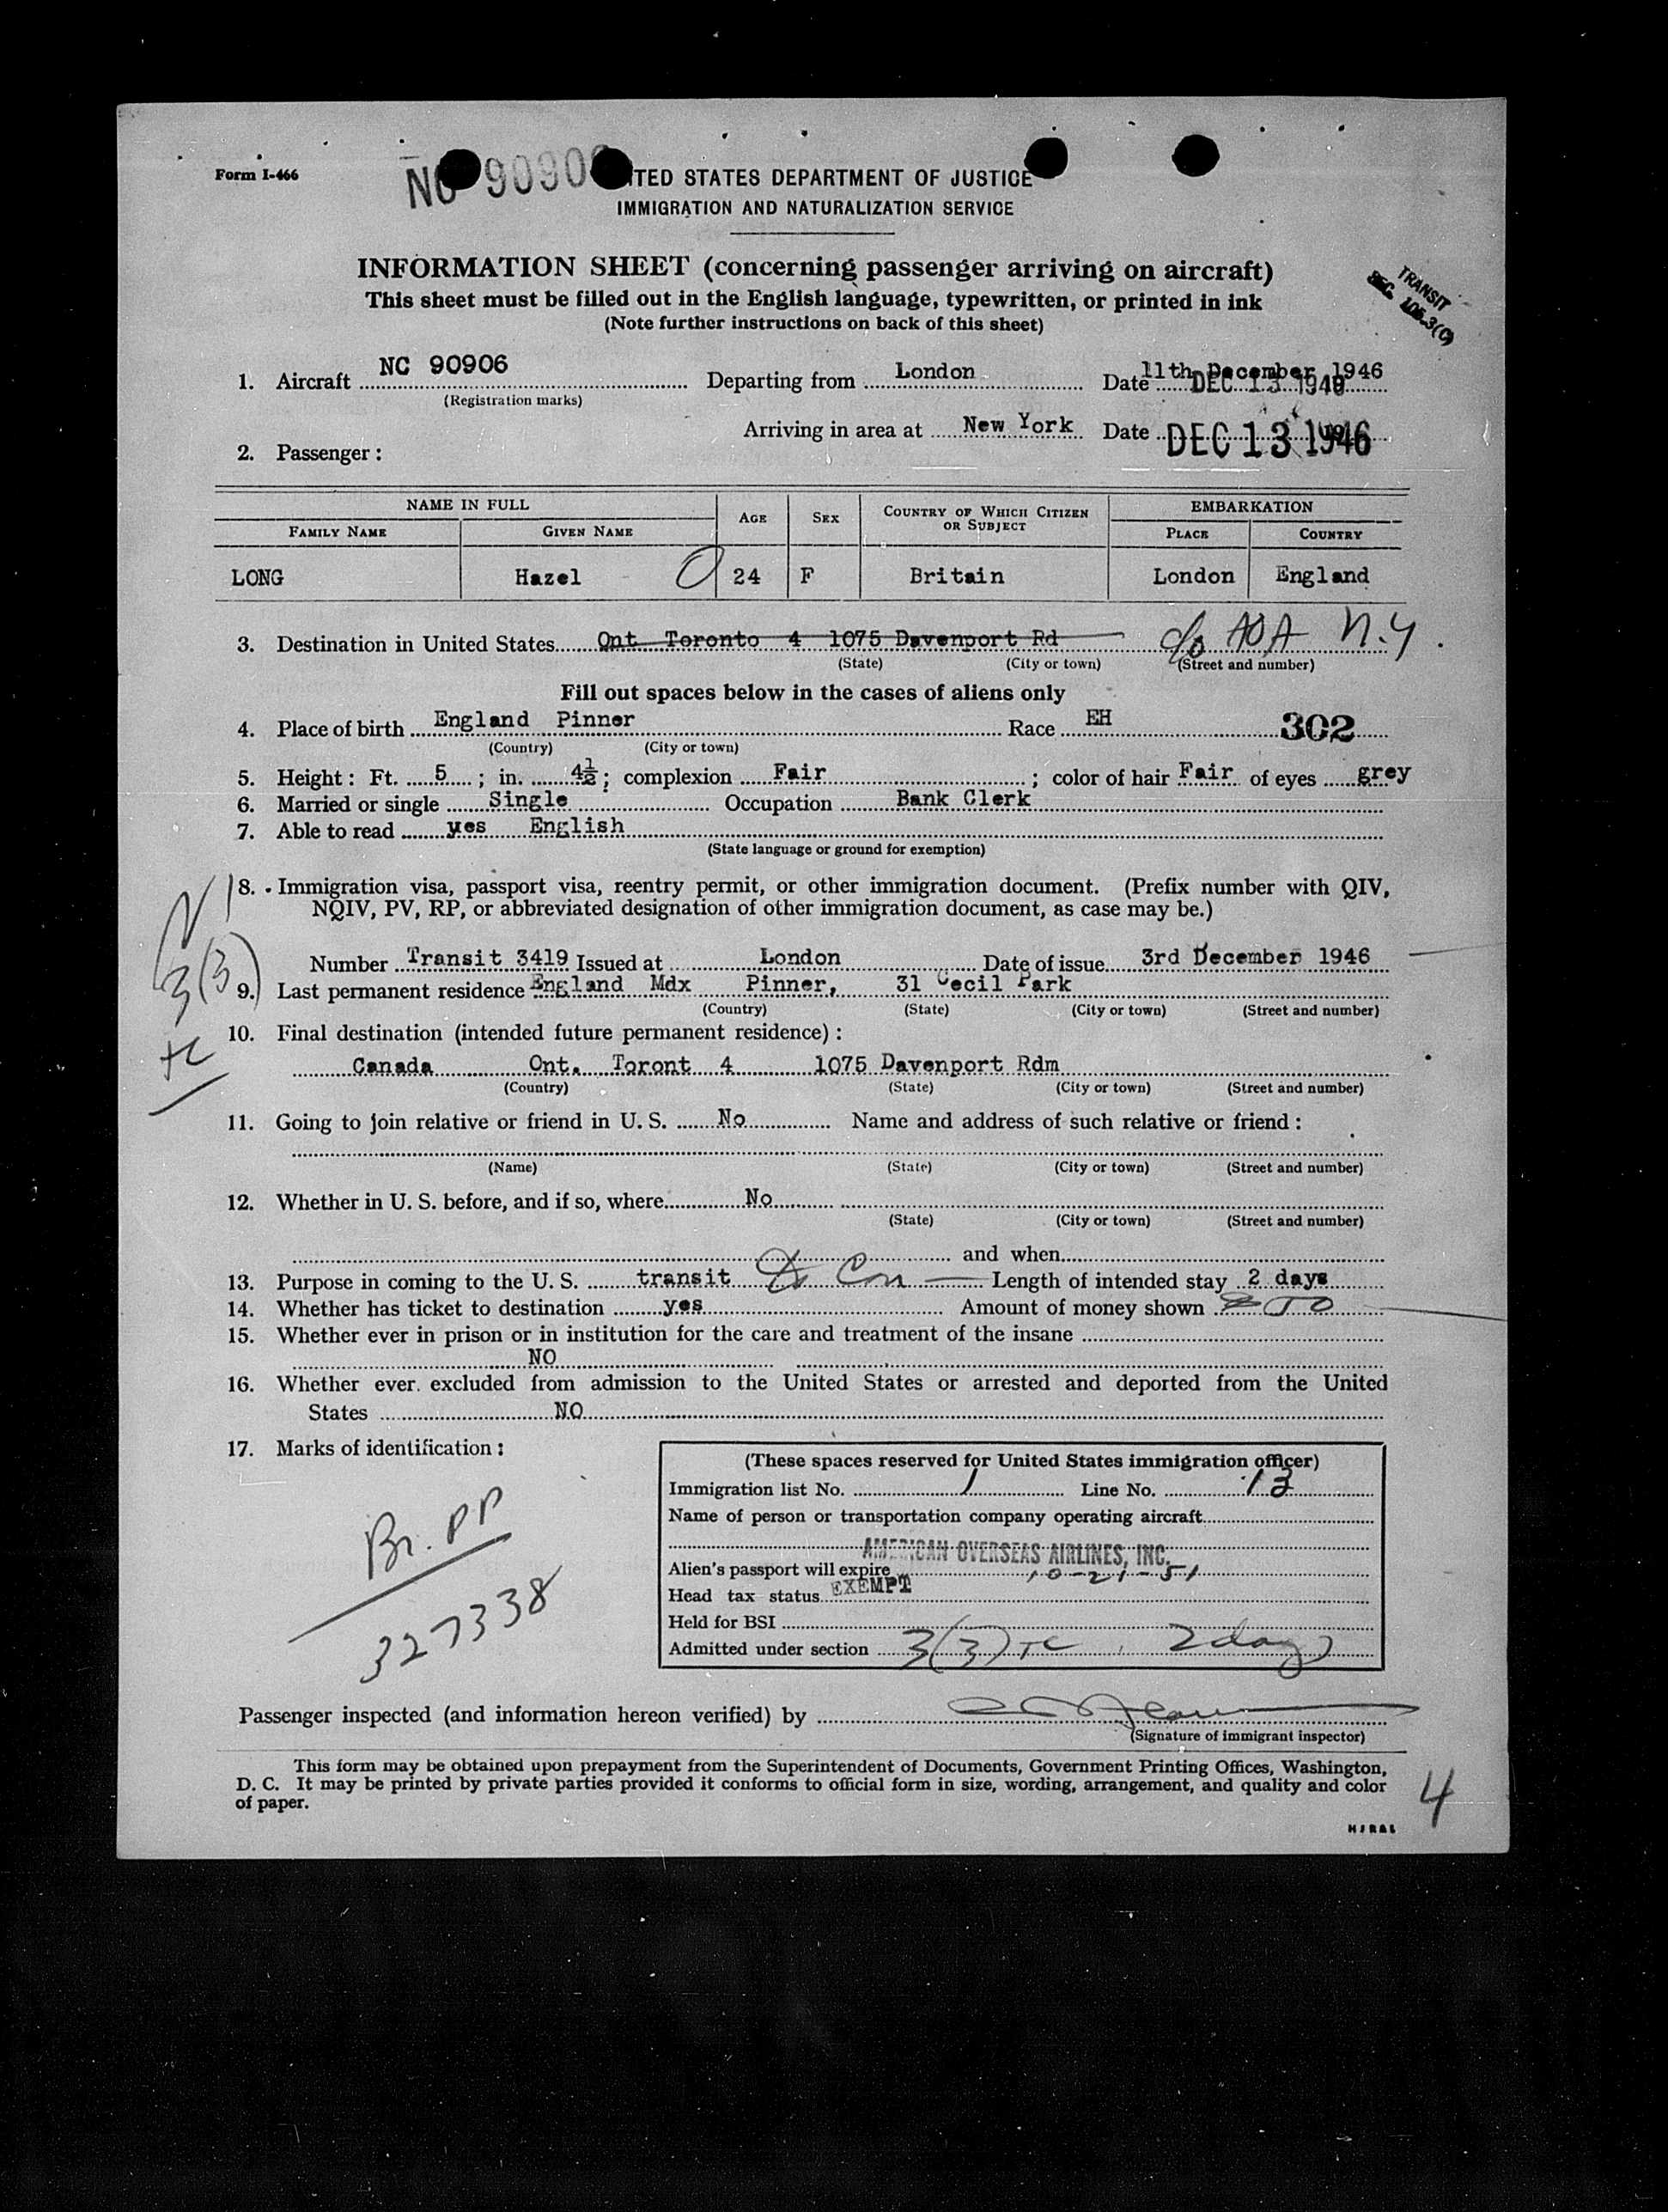 Form I-466
NC 9090
ITED STATES DEPARTMENT OF JUSTICE
IMMIGRATION AND NATURALIZATION SERVICE
INFORMATION SHEET (concerning passenger arriving on aircraft)
This sheet must be filled out in the English language, typewritten, or printed in ink
(Note further instructions on back of this sheet)
TRANSIT
SEC. 105.3(C)
1. Aircraft NC 90906 Departing from London Date 11th December 1946 DEC 13 194
(Registration marks)
Arriving in area at New York Date DEC 13 1946
2. Passenger:
NAME IN FULL AGE SEX COUNTRY OF WHICH CITIZEN OR SUBJECT EMBARKATION
FAMILY NAME GIVEN NAME PLACE COUNTRY
LONG Hazel 0 24 F Britain London England
3. Destination in United States Ont Toronto 4 1075 Davenport Rd c/o AOA N.Y.
(State) (City or town) (Street and number)
Fill out spaces below in the cases of aliens only
4. Place of birth England Pinner Race EH 302
(Country) (City or town)
5. Height: Ft. 5; in. 4½; complexion Fair; color of hair Fair of eyes grey
6. Married or single Single Occupation Bank Clerk
7. Able to read yes English
(State language or ground for exemption)
8. Immigration visa, passport visa, reentry permit, or other immigration document. (Prefix number with QIV,
NQIV, PV, RP, or abbreviated designation of other immigration document, as case may be.)
3(3)
tc
Number Transit 3419 Issued at London Date of issue 3rd December 1946
9. Last permanent residence England Mdx Pinner, 31 Cecil Park
(Country) (State) (City or town) (Street and number)
10. Final destination (intended future permanent residence):
Canada Ont. Toront 4 1075 Davenport Rdm
(Country) (State) (City or town) (Street and number)
11. Going to join relative or friend in U. S. No Name and address of such relative or friend:
(Name) (State) (City or town) (Street and number)
12. Whether in U. S. before, and if so, where No
(State) (City or town) (Street and number)
and when
13. Purpose in coming to the U. S. transit Length of intended stay 2 days
14. Whether has ticket to destination yes Amount of money shown
15. Whether ever in prison or in institution for the care and treatment of the insane
NO
16. Whether ever excluded from admission to the United States or arrested and deported from the United
States NO
17. Marks of identification:
Br. PP
327338
(These spaces reserved for United States immigration officer)
Immigration list No. 1 Line No. 13
Name of person or transportation company operating aircraft
AMERICAN OVERSEAS AIRLINES, INC.
Alien's passport will expire 10-21-51
Head tax status EXEMPT
Held for BSI
Admitted under section 3(3) TC 2 days
Passenger inspected (and information hereon verified) by
(Signature of immigrant inspector)
This form may be obtained upon prepayment from the Superintendent of Documents, Government Printing Offices, Washington,
D. C. It may be printed by private parties provided it conforms to official form in size, wording, arrangement, and quality and color
of paper.
4